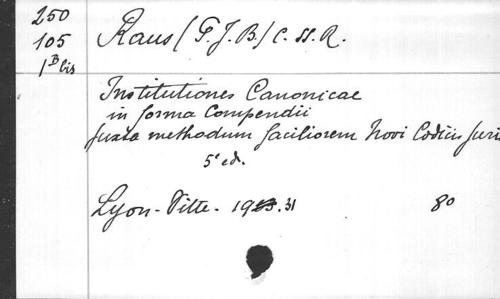 250
105
1 B bis
Raus (P. J. B) C. SS. R.
Institutiones Canonicae
in forma Compendii
juxta methodum faciliorem Novi Codicis Juri
5e ed.
Lyon - Vitte - 19 . 31
80